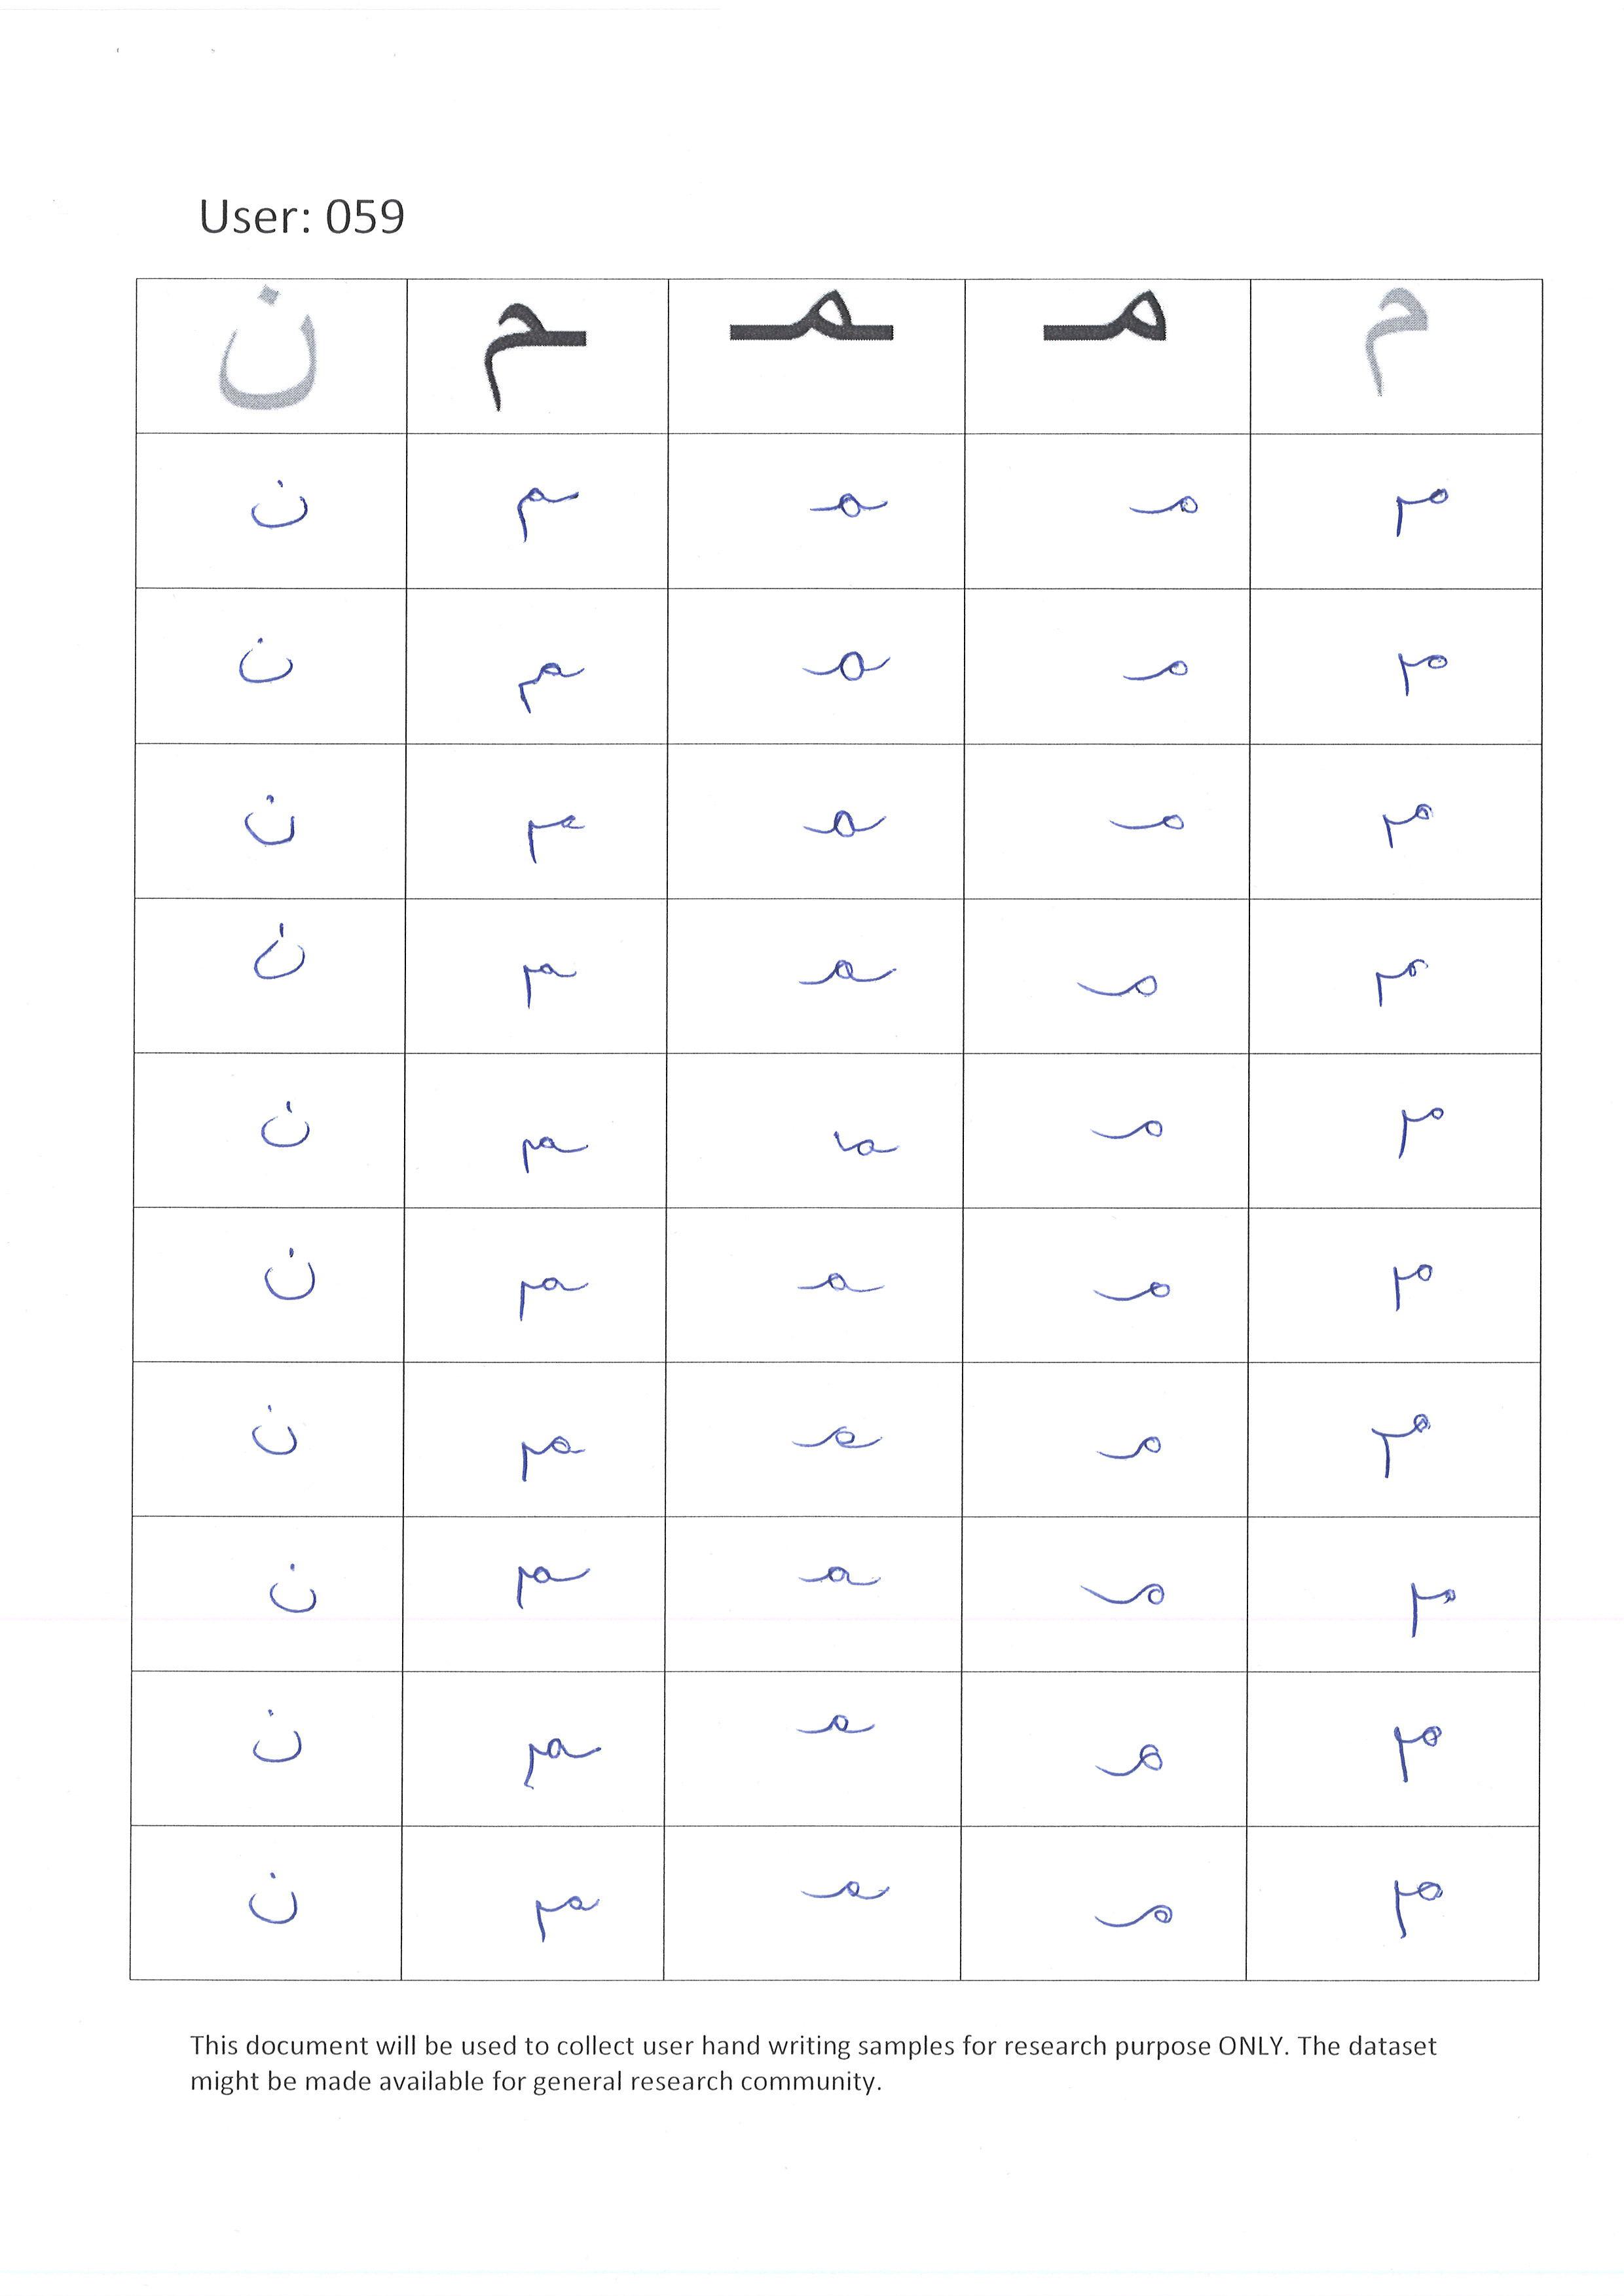 User: 059
م مـ ـمـ ـم ن
م مـ ـمـ ـم ن
م مـ ـمـ ـم ن
م مـ ـمـ ـم ن
م مـ ـمـ ـم ن
م مـ ـمـ ـم ن
م مـ ـمـ ـم ن
م مـ ـمـ ـم ن
م مـ ـمـ ـم ن
م مـ ـمـ ـم ن
م مـ ـمـ ـم ن
This document will be used to collect user hand writing samples for research purpose ONLY. The dataset
might be made available for general research community.